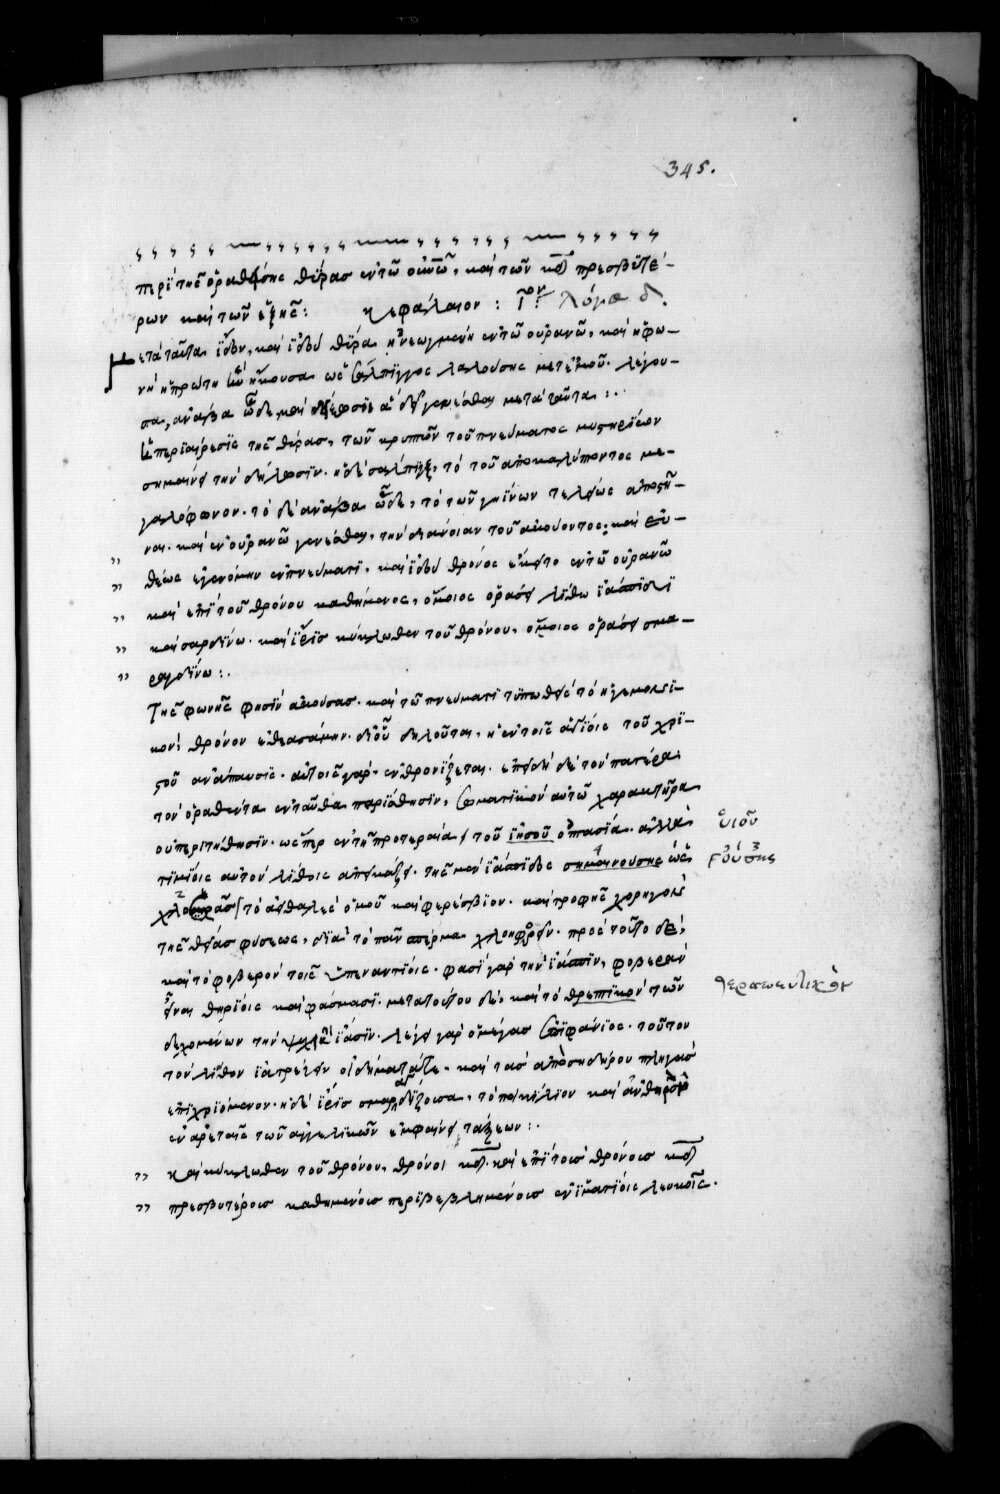 345.
περὶ τῆς ὁραθείσης θύρας ἐν τῶ οὐνῶ, καὶ τῶν κδ πρεσβυτέ-
ρων καὶ τῶν ἑξῆς: κεφάλαιον: ῑον: λόγω δ.
Μετὰ ταῦτα ἶδον, καὶ ἰδοὺ θύρα ἠνεωγμένη ἐν τῶ οὐρανῶ, καὶ ἡ φω-
νὴ ἡ πρώτη ἣν ἤκουσα ὡς σάλπιγγος λαλούσης μετ' ἐμοῦ. λέγου-
σα, ἀνάβα ὧδε, καὶ δείξω σοι ἃ δεῖ γενέσθαι μετὰ ταῦτα:.
ἡ περιαίρεσις τῆς θύρας, τῶν κρυπτῶν τοῦ πνεύματος μυστηρίων
σημαίνει τὴν δήλωσιν. ἡ δὲ σάλπιγξ, τὸ τοῦ ἀποκαλύπτοντος με-
γαλόφωνον. τὸ δὲ ἀνάβα ὧδε, τὸ τῶν γηΐνων τελείως ἀποστῆ-
ναι. καὶ ἐν οὐρανῶ γενέσθαι, τὴν διάνοιαν τοῦ ἀκούοντος: καὶ εὐ-
θέως ἐγενόμην ἐν πνεύματι, καὶ ἰδοὺ θρόνος ἔκειτο ἐν τῶ οὐρανῶ
καὶ ἐπὶ τοῦ θρόνου καθήμενος, ὅμοιος ὁράσει λίθω ἰάσπιδι
καὶ σαρδίνω. καὶ ἶρις κύκλωθεν τοῦ θρόνου, ὅμοιος ὁράσει σμα-
ραγδίνω:.
Τῆς φωνῆς φησὶν ἀκούσας. καὶ τῶ πνεύματι τυπωθεὶς τὸ ἡγεμονι-
κὸν, θρόνον ἐθεασάμην. δι' οὗ δηλοῦται, ἡ ἐν τοῖς ἁγίοις τοῦ χρι-
στοῦ ἀνάπαυσις. αὐτοῖς γὰρ, ἐνθρονίζεται. ἐπειδὴ δὲ τὸν πατέρα
τὸν ὁραθέντα ἐνταῦθα παρίστησιν, σωματικὸν αὐτῶ χαρακτῆρα
οὐ περιτίθησιν. ὥσπερ ἐν τῆ προτεραία τοῦ ἰησοῦ ὀπτασία. ἀλλὰ υἱοῦ
τιμίοις αὐτὸν λίθοις ἀπεικάζει. τῆς μὲν ἰάσπιδος σημαινούσης ὡς
τὸ ἀειθαλὲς ὁμοῦ καὶ φερέσβιον. καὶ τροφῆς χορηγὸν
τῆς θείας φύσεως, διὰ τὸ πᾶν σπέρμα χλοηφορεῖν. πρὸς τοῦτο δὲ,
καὶ τὸ φοβερὸν τοῖς ὑπεναντίοις. φασὶ γὰρ τὴν ἴασπιν, φοβερὰν
εἶναι θηρίοις καὶ φάσμασι. μετὰ τούτου δὲ, καὶ τὸ θρεπτικὸν τῶν θεραπευτικὸν
δεχομένων τὴν ἴασιν. λέγει γὰρ ὁ μέγας ἐπιφάνιος. τοῦτον
τὸν λίθον ἰατρεύειν οἰδήματά τε. καὶ τὰς ἀπὸ σιδήρου πληγὰς
ἐπιχριόμενον. ἡ δὲ ἶρις σμαραγδίζουσα, τὸ ποικίλον καὶ
ἐν ἀρεταῖς τῶν ἀγγελικῶν ἐμφαίνει τάξεων:.
καὶ κύκλωθεν τοῦ θρόνου, θρόνοι κδ. καὶ ἐπὶ τοὺς θρόνους κδ
πρεσβυτέρους καθημένους περιβεβλημένους ἐν ἱματίοις λευκοῖς.